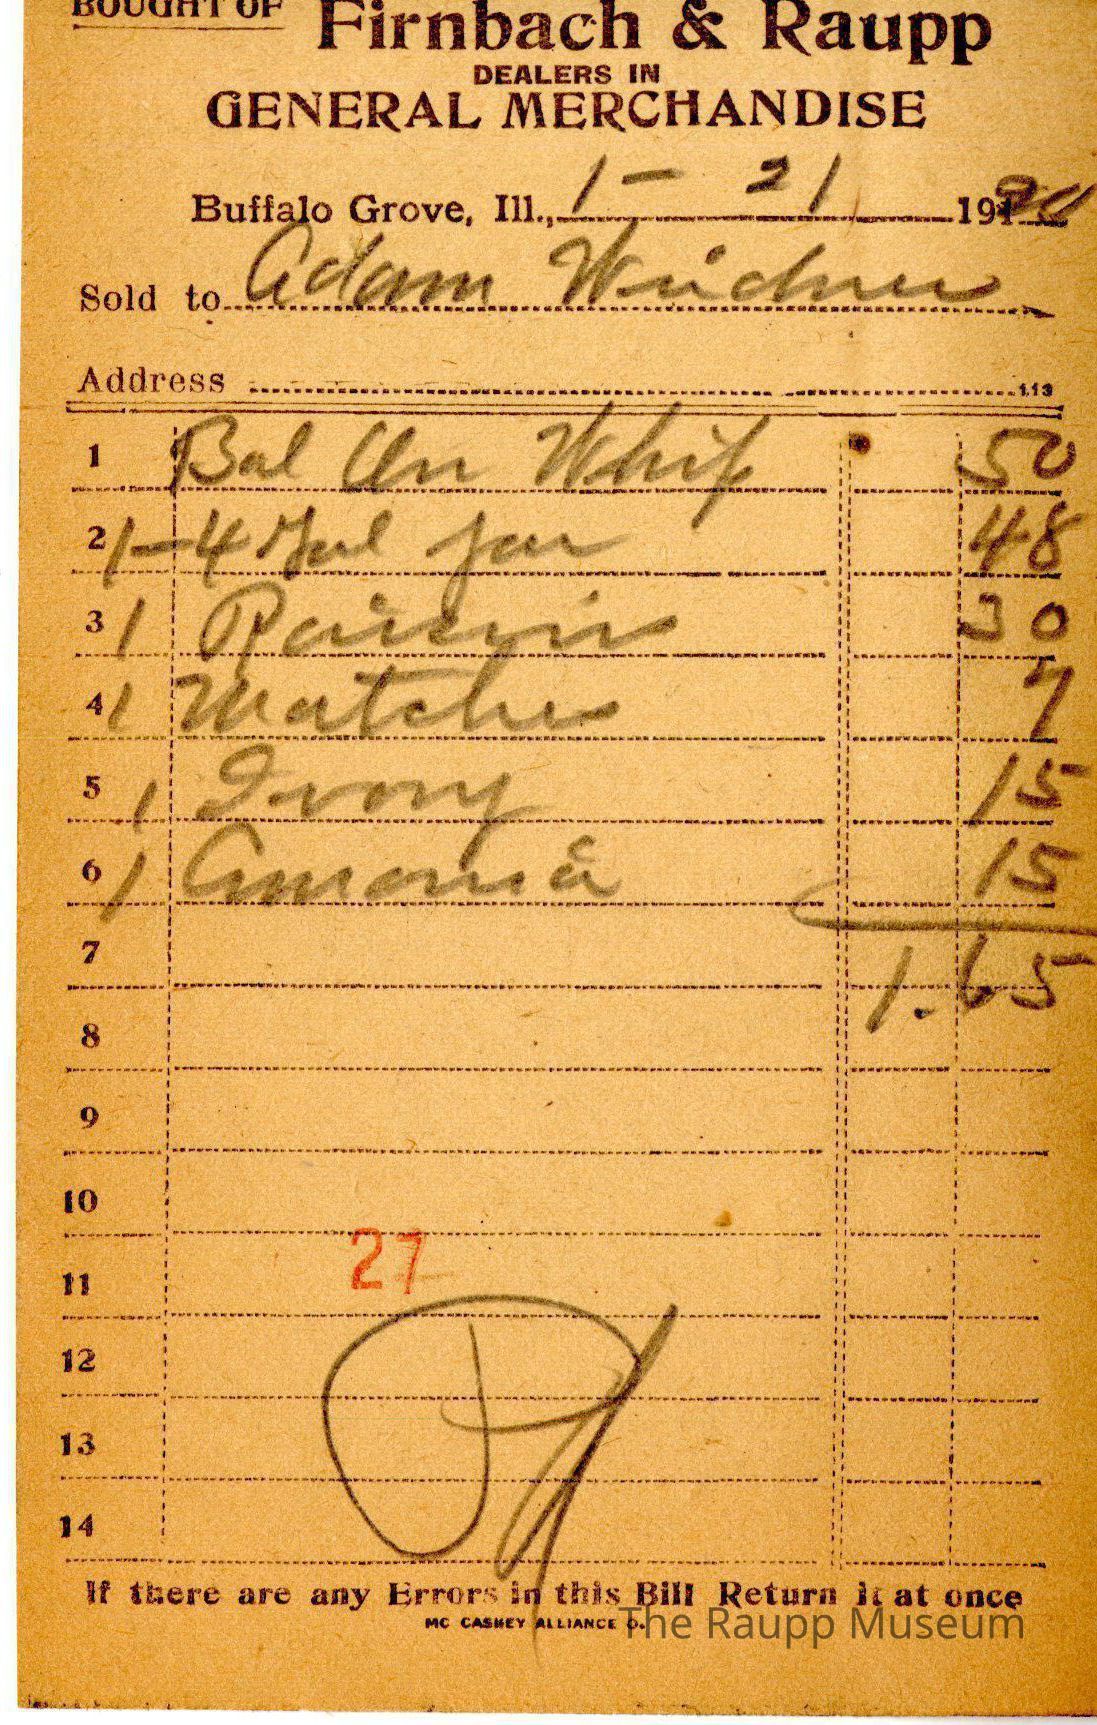 BOUGHT OF Firnbach & Raupp
DEALERS IN
GENERAL MERCHANDISE
Buffalo Grove, Ill., 1 - 21 191 20
Sold to Adam Weidner
Address 113
1 Bal On Whip 50
2 1-4 Gal jar 48
3 1 Raisins 30
4 1 Matches 7
5 1 Ivory 15
6 1 Amonia 15
7 1.65
8
9
10
11 27
12
13
14
If there are any Errors in this Bill Return it at once
MC CASKEY ALLIANCE O.
The Raupp Museum